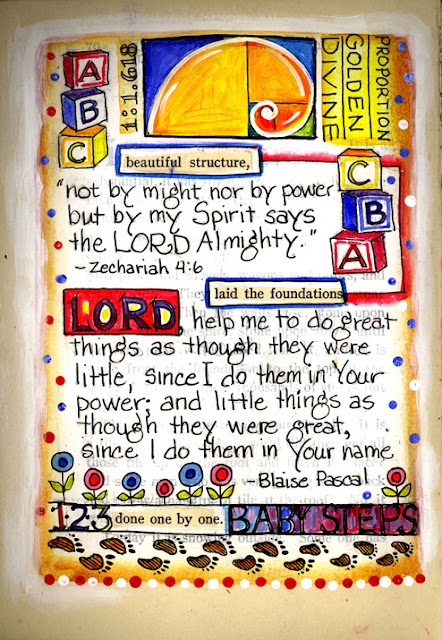 A
B
C
1:1.618
DIVINE
GOLDEN
PROPORTION
beautiful structure,
C
B
A
"not by might nor by power
but by my Spirit says
the LORD Almighty."
- Zechariah 4:6
laid the foundations
LORD, help me to do great
things as though they were
little, since I do them in Your
power; and little things as
though they were great,
since I do them in Your name
- Blaise Pascal
1·2·3 done one by one. BABY STEPS